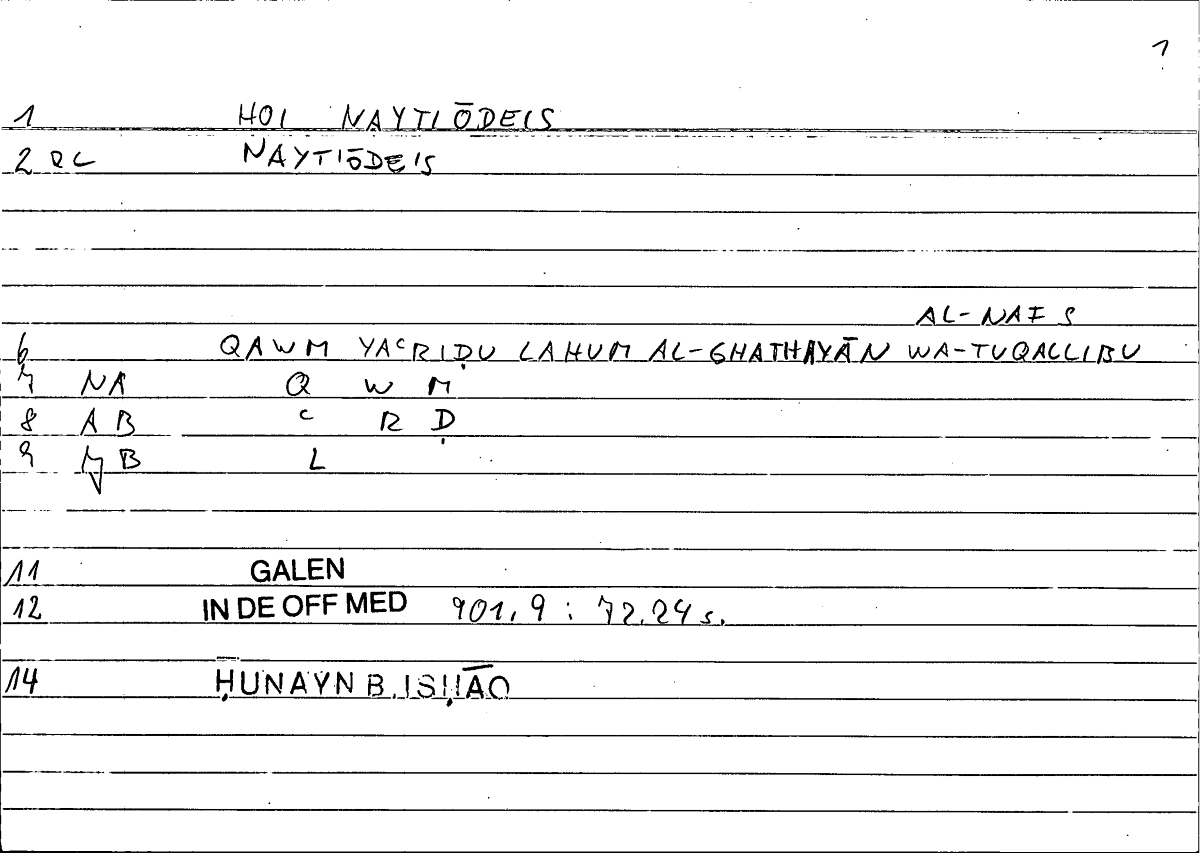 1
1 HOI NAYTIŌDEIS
2 QC NAYTIŌDEIS
AL-NAFS
6 QAWM YAᶜRIḌU LAHUM AL-GHATHAYĀN WA-TUQALLIBU
7 NA Q W M
8 AB ᶜ R Ḍ
9 JB L
11 GALEN
12 IN DE OFF MED 901,9 : 72.24 s.
14 ḤUNAYN B. ISḤĀQ